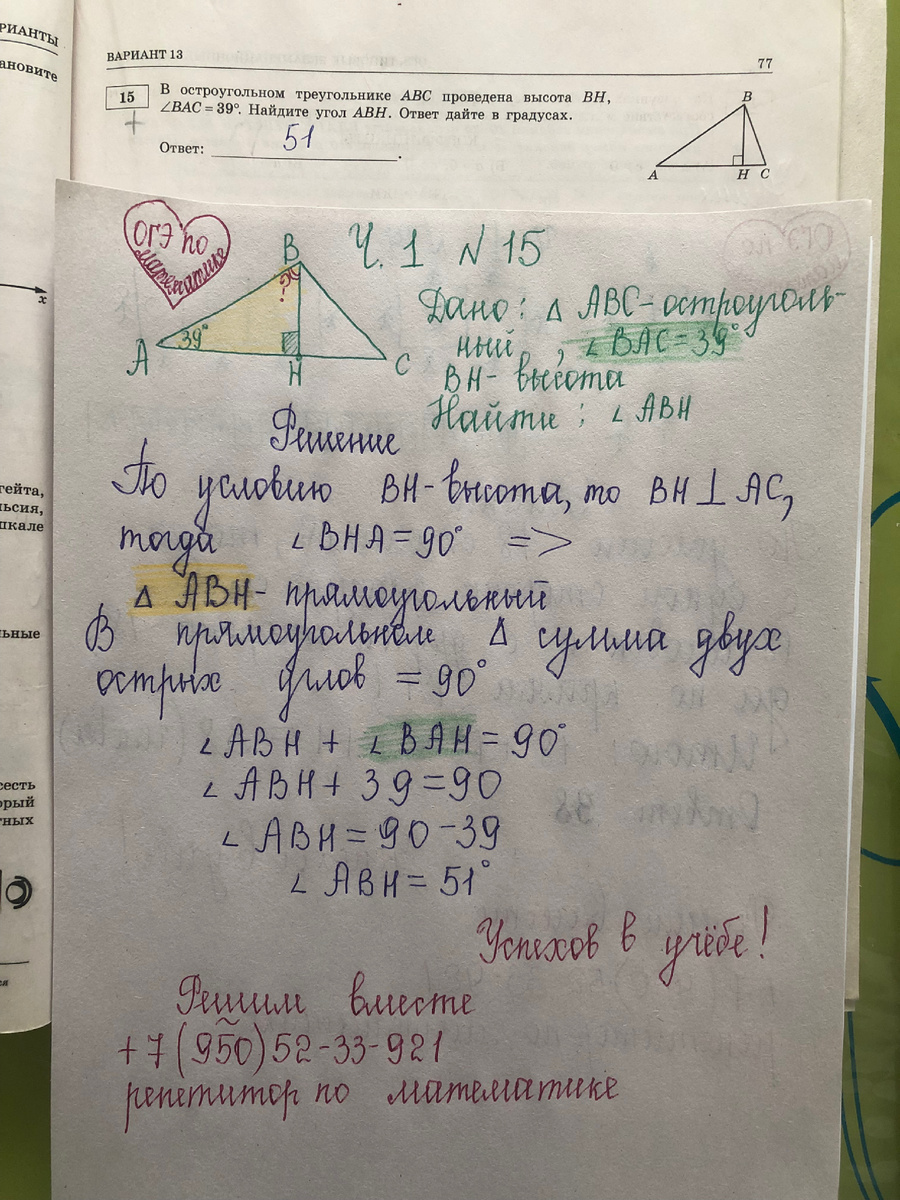 РИАНТЫ
ановите
x
гейта,
льсия,
шкале
льные
есть
орый
тных
ВАРИАНТ 13
77
15
В остроугольном треугольнике ABC проведена высота BH,
∠BAC = 39°. Найдите угол ABH. Ответ дайте в градусах.
+
Ответ: 51.
B
A H C
ОГЭ по
математике
Ч. 1 N 15
B
x
?
39°
A
H
C
Дано: Δ ABC-остроуголь-
ный, ∠BAC=39°
BH- высота
Найти: ∠ABH
Решение
По условию BH-высота, то BH⊥AC,
тогда ∠BHA=90° =>
Δ ABH- прямоугольный
В прямоугольном Δ сумма двух
острых углов = 90°
∠ABH + ∠BAH = 90°
∠ABH + 39 = 90
∠ABH = 90 - 39
∠ABH = 51°
Успехов в учёбе!
Решим вместе
+7(950)52-33-921
репетитор по математике